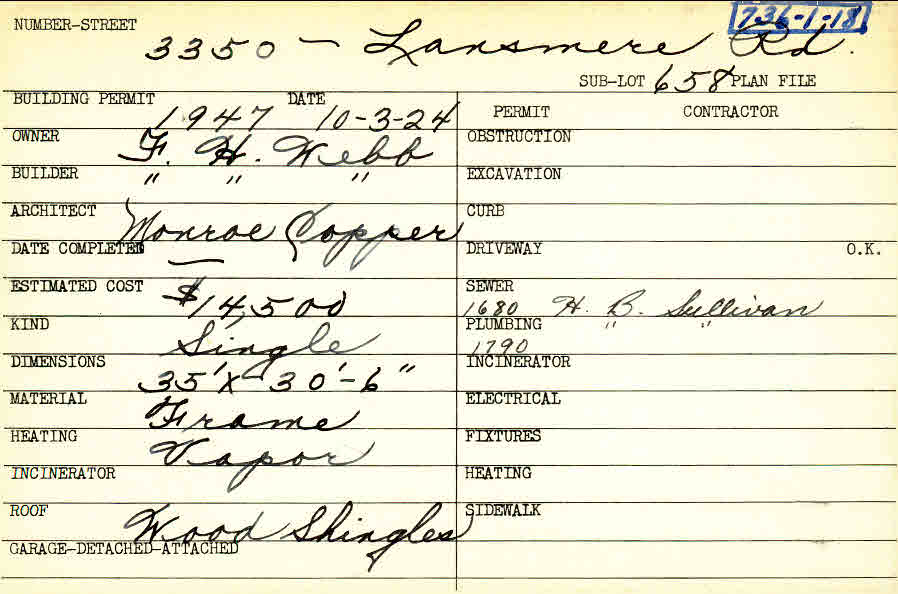 736-1-18
NUMBER-STREET 3350 - Lansmere Rd.
SUB-LOT 658 PLAN FILE
BUILDING PERMIT 1947 DATE 10-3-24
PERMIT CONTRACTOR
OWNER F. H. Webb
OBSTRUCTION
BUILDER " " "
EXCAVATION
ARCHITECT Monroe Copper
CURB
DATE COMPLETED —
DRIVEWAY O.K.
ESTIMATED COST $14,500
SEWER 1680 H. B. Sullivan
KIND Single
PLUMBING 1790 " "
DIMENSIONS 35' X 30'-6"
INCINERATOR
MATERIAL Frame
ELECTRICAL
HEATING Vapor
FIXTURES
INCINERATOR
HEATING
ROOF Wood Shingles
SIDEWALK
GARAGE-DETACHED-ATTACHED